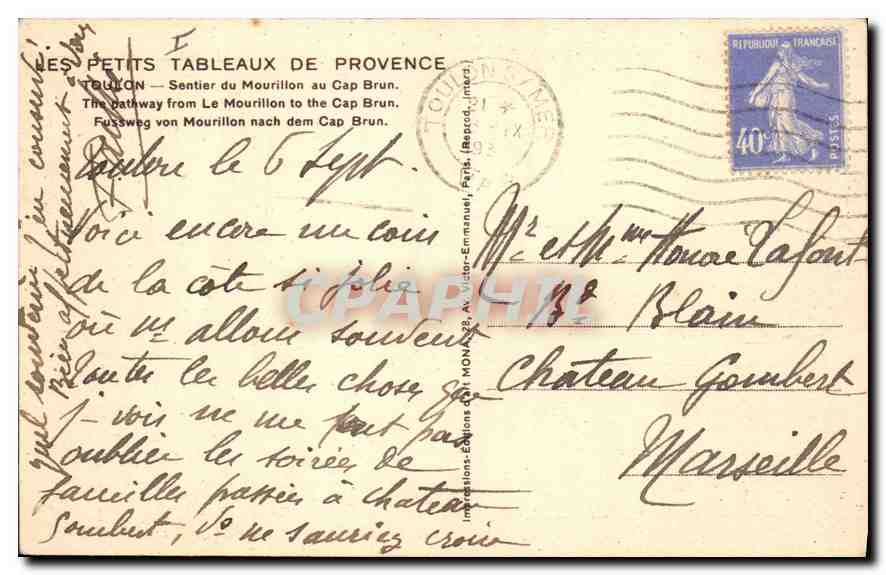 LES PETITS TABLEAUX DE PROVENCE
TOULON — Sentier du Mourillon au Cap Brun.
The pathway from Le Mourillon to the Cap Brun.
Fussweg von Mourillon nach dem Cap Brun.
Toulon le 6 Sept.
Voici encore un coin
de la côte si jolie
où ns allons souvent
Toutes les belles choses que
j-vois ne me font pas
oublier les soirées de
familles passées à chateau
Gombert, Vs ne sauriez croire
quel souvenir j'en conserve
Bien affectueusement à vous
Impressions-Editions d'art MONA, 28, Av. Victor-Emmanuel, Paris. (Reprod. Interd.)
TOULON S/MER
REPUBLIQUE FRANÇAISE
40c
POSTES
Mr et Mme Honoré Lafont
Bd Blain
Chateau Gombert
Marseille
CPAPHIL